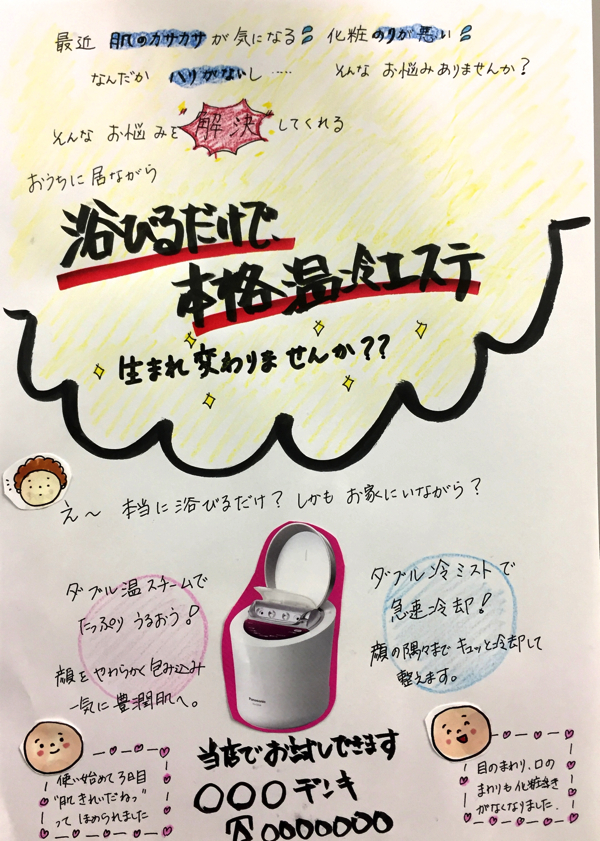 最近 肌のカサカサが気になる 化粧のりが悪い
なんだか ハリがないし…… そんな お悩みありませんか?
そんな お悩みを"解決"してくれる
おうちに居ながら
浴びるだけで、
本格温冷エステ
生まれ変わりませんか??
え〜 本当に浴びるだけ? しかも お家にいながら?
ダブル温スチームで
たっぷり うるおう!
顔をやわらかく包み込み
一気に豊潤肌へ。
ダブル冷ミストで
急速冷却!
顔の隅々まで キュッと冷却して
整えます。
Panasonic
当店でお試しできます
〇〇〇デンキ
☎〇〇〇〇〇〇〇
使い始めて3日目
"肌きれいだねっ"
って ほめられました
目のまわり、口の
まわりも化粧浮き
がなくなりました。